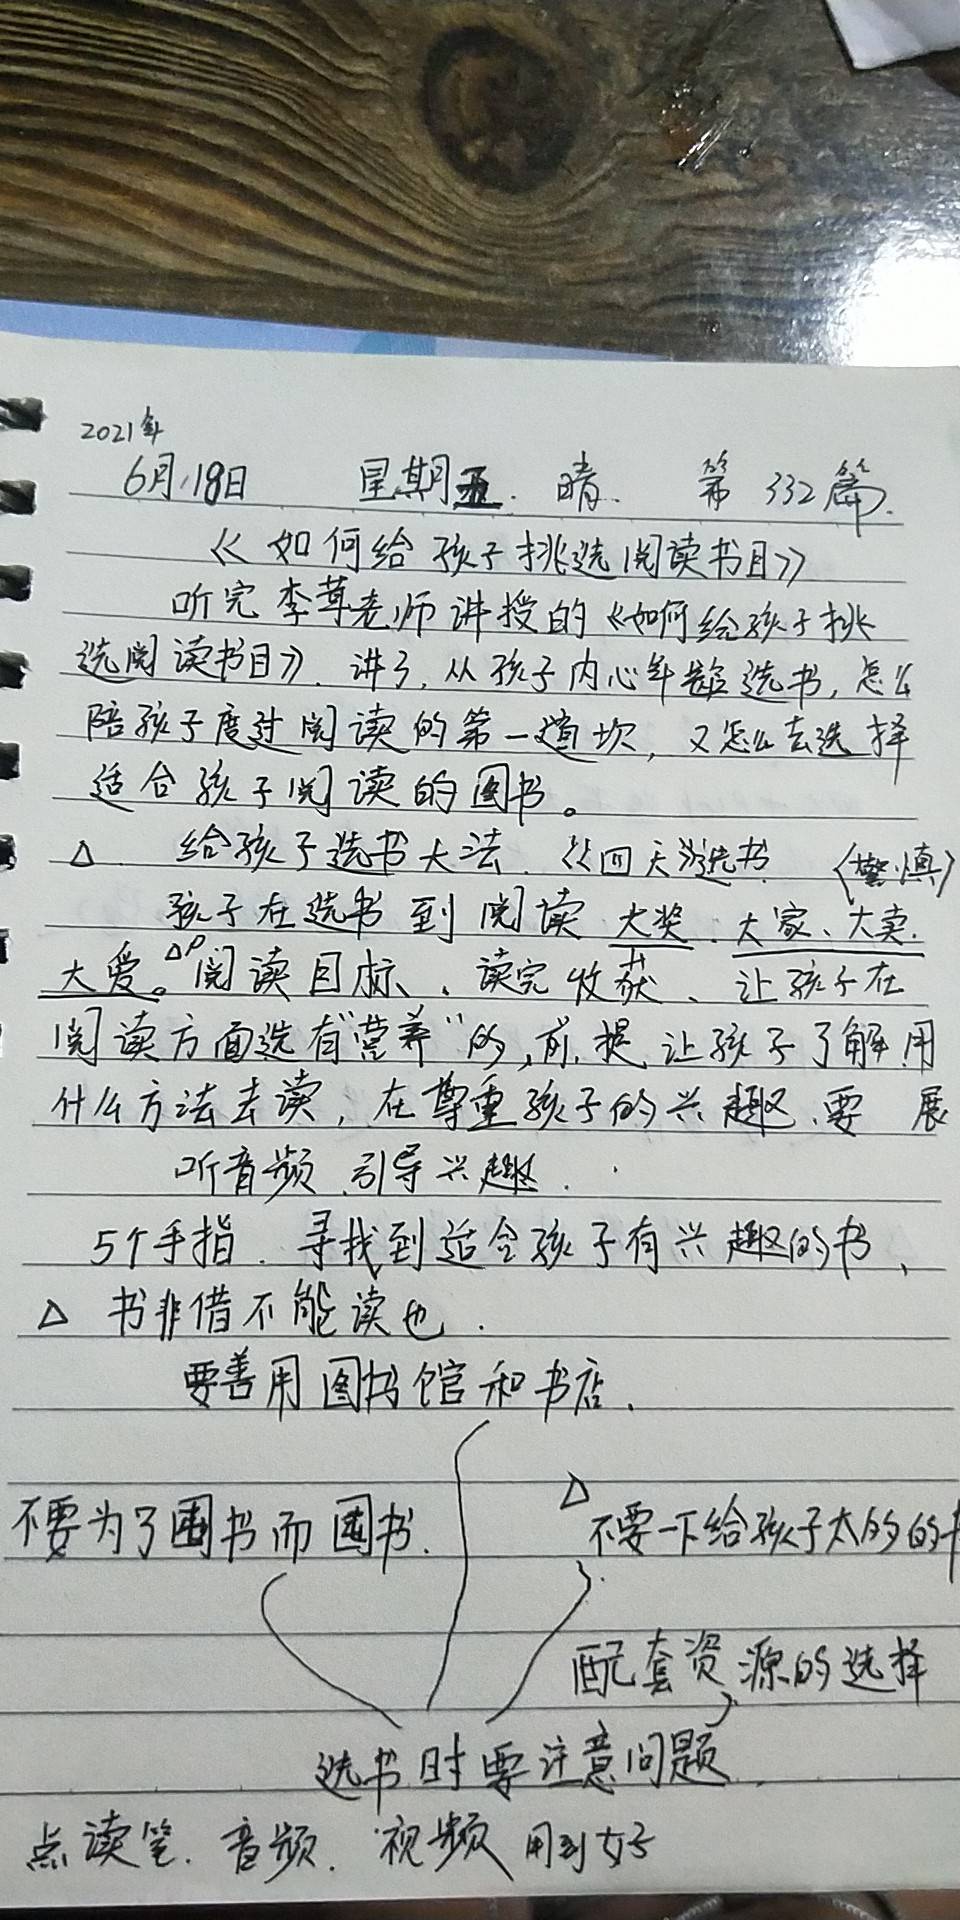 2021年
6月18日 星期五. 晴. 第332篇.
《如何给孩子挑选阅读书目》
听完李茸老师讲授的《如何给孩子挑
选阅读书目》. 讲了, 从孩子内心年龄选书, 怎么
陪孩子度过阅读的第一道坎, 又怎么去选择
适合孩子阅读的图书。
△ 给孩子选书大法. 《四天》选书. 〈警慎〉
孩子在选书到阅读 大奖、大家、大卖.
大爱。阅读目标、读完收获、让孩子在
阅读方面选有“营养”的, 前提, 让孩子了解用
什么方法去读, 在尊重孩子的兴趣、要 展
听音频、引导兴趣.
5个手指. 寻找到适合孩子有兴趣的书、
△ 书非借不能读也.
要善用图书馆和书店.
不要为了囤书而囤书.
△ 不要一下给孩子太的的
配套资源的选择
选书时要注意问题.
点读笔. 音频. 视频 用到好